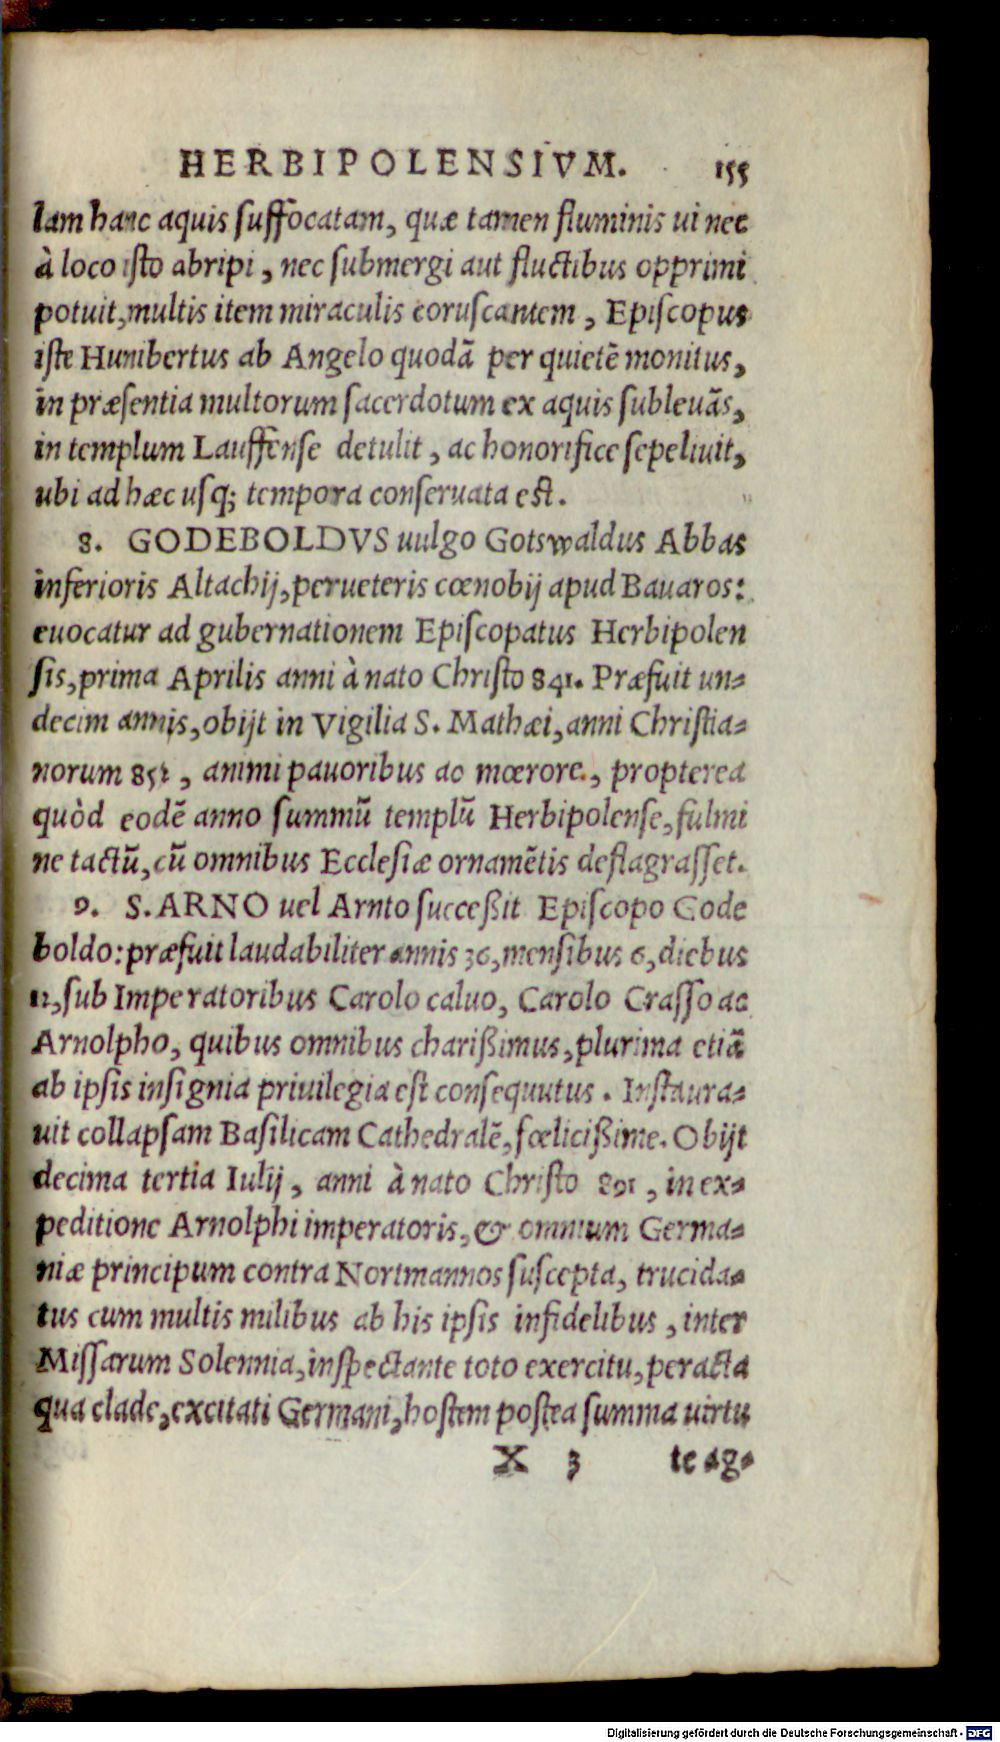 HERBIPOLENSIVM. 155
lam hanc aquis suffocatam, quæ tamen fluminis ui nec
à loco isto abripi, nec submergi aut fluctibus opprimi
potuit, multis item miraculis coruscantem, Episcopus
iste Hunibertus ab Angelo quodã per quietẽ monitus,
in præsentia multorum sacerdotum ex aquis subleuãs,
in templum Lauffense detulit, ac honorifice sepeliuit,
ubi ad hæc usq; tempora conseruata est.
8. GODEBOLDVS uulgo Gotswaldus Abbas
inferioris Altachij, perueteris cœnobij apud Bauaros:
euocatur ad gubernationem Episcopatus Herbipolen
sis, prima Aprilis anni à nato Christo 841. Præfuit un-
decim annis, obijt in Vigilia S. Mathæi, anni Christia-
norum 852, animi pauoribus ac mœrore, propterea
quòd eodẽ anno summũ templũ Herbipolense, fulmi
ne tactũ, cũ omnibus Ecclesiæ ornamẽtis deflagrasset.
9. S. ARNO uel Arnto successit Episcopo Gode
boldo: præfuit laudabiliter annis 36, mensibus 6, diebus
12, sub Imperatoribus Carolo caluo, Carolo Crasso ac
Arnolpho, quibus omnibus charissimus, plurima etiã
ab ipsis insignia priuilegia est consequutus. Instaura-
uit collapsam Basilicam Cathedralẽ, fœlicissime. Obijt
decima tertia Iulij, anni à nato Christo 891, in ex-
peditione Arnolphi imperatoris, & omnium Germa-
niæ principum contra Nortmannos suscepta, trucida-
tus cum multis milibus ab his ipsis infidelibus, inter
Missarum Solennia, inspectante toto exercitu, peracta
qua clade, excitati Germani, hostem postea summa uirtu
X 3 te ag-
Digitalisierung gefördert durch die Deutsche Forschungsgemeinschaft - DFG